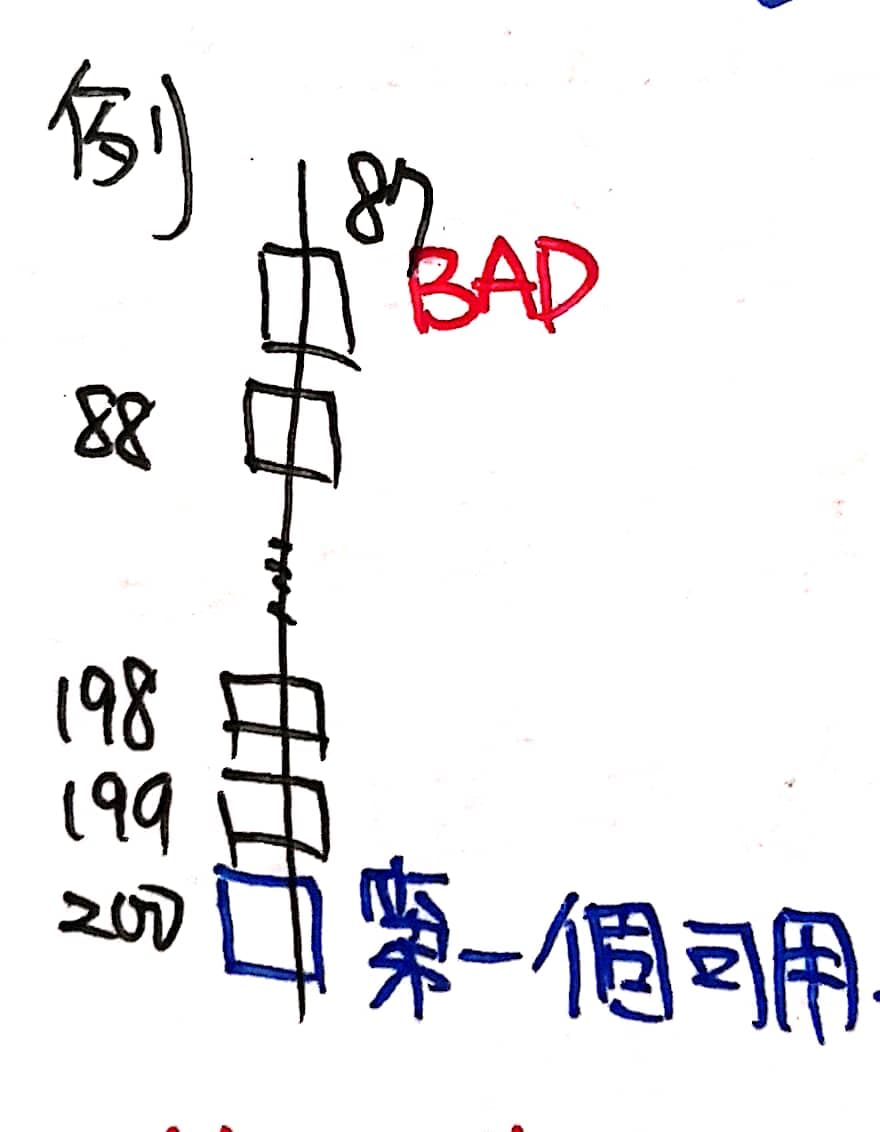 例
87
BAD
88
198
199
200 第一個可用.